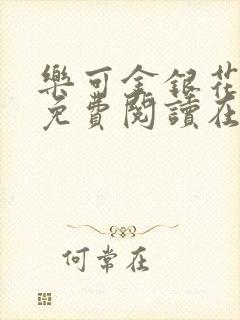 樂可金銀花
免費閱讀在
何常在